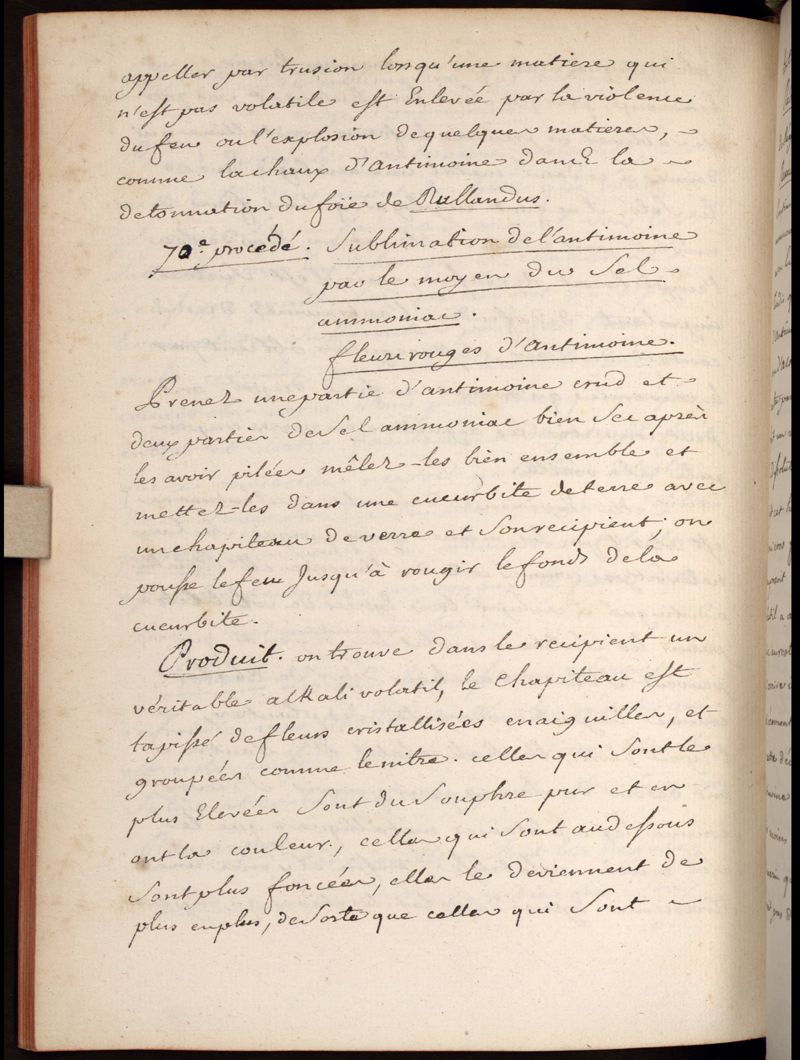 appeller par trusion lorsqu'une matiere qui
n'est pas volatile est Enlevée par la violence
du feu ou l'explosion de quelques matieres, -
comme la chaux d'antimoine dans la -
detonnation du foie de Rullandus.
70e procédé. Sublimation de l'antimoine
par le moyen du Sel -
ammoniac.
fleurs rouges d'antimoine.
Prenez une partie d'antimoine crud et -
deux parties de Sel ammoniac bien Sec après
les avoir pilées mêlez-les bien ensemble et
mettez-les dans une cucurbite de terre avec
un chapiteau de verre et Son recipient; on
pousse le feu Jusqu'à rougir le fond de la
cucurbite.
Produit. on trouve dans le recipient un
véritable alkali volatil, le chapiteau est
tapissé de fleurs cristallisées en aiguilles, et
groupées comme le nitre. celles qui Sont le
plus Elevées Sont du Souphre pur et en -
ont la couleur, celles qui Sont au dessous
Sont plus foncées, elles le deviennent de
plus en plus, de Sorte que celles qui Sont -